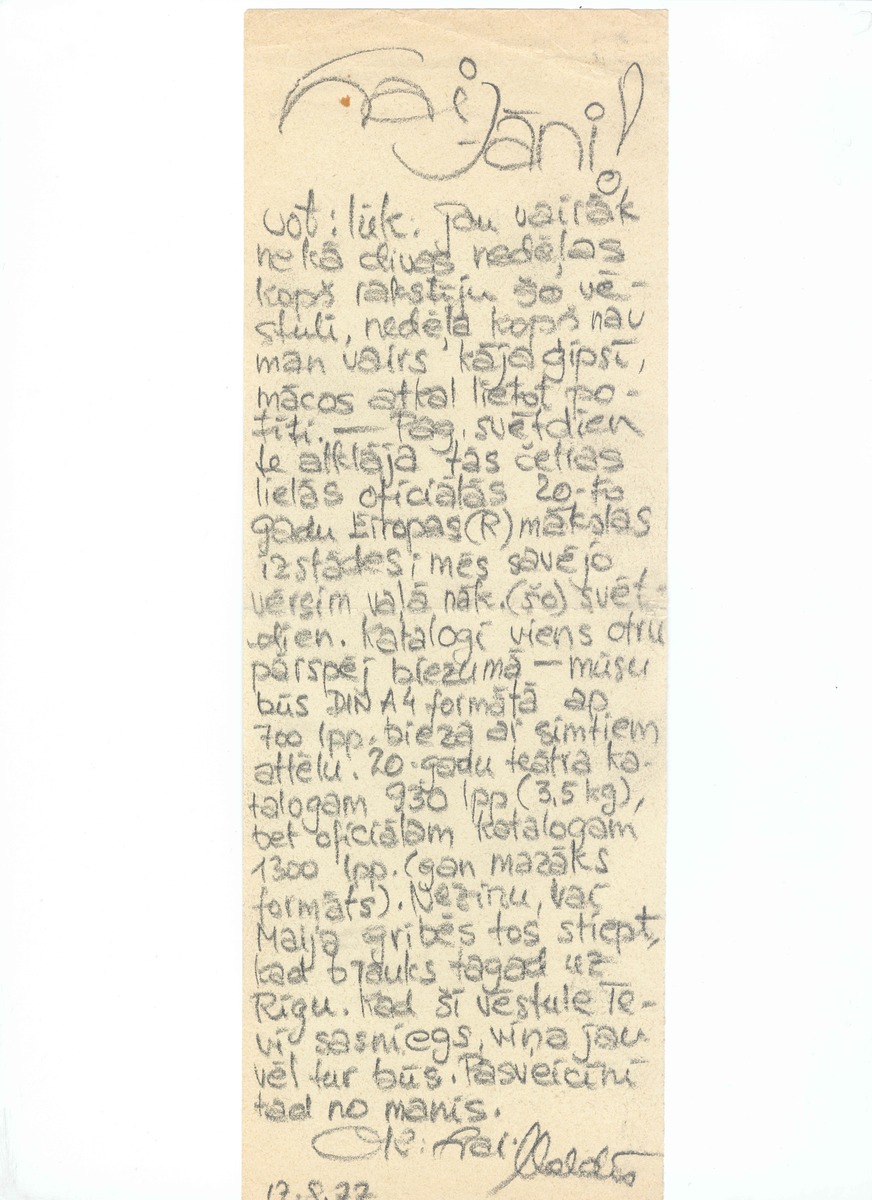 Čai Jāni!
Vot: lūk. Jau vairāk
nekā divas nedēļas
kopš rakstīju šo vē-
stuli, nedēļa kopš nav
man vairs kāja ģipsī,
mācos atkal lietot po-
tīti. — Pag. svētdien
te atklāja tās četras
lielās oficiālās 20-to
gadu Eiropas (R) mākslas
izstādes; mēs savējo
vērsim vaļā nāk. (šo) svēt-
dien. Katalogi viens otru
pārspēj biezumā — mūsu
būs DIN A4 formātā ap
700 lpp. bieza ar simtiem
attēlu. 20-gadu teātra ka-
talogam 930 lpp (3,5 kg),
bet oficiālam katalogam
1300 lpp. (gan mazāks
formāts). Nezinu, vai
Maija gribēs tos stiept,
kad brauks tagad uz
Rīgu. Kad šī vēstule Te-
vi sasniegs, viņa jau
vēl tur būs. Pasveicini
tad no manis.
OK: čai: Valdis
17.8.77